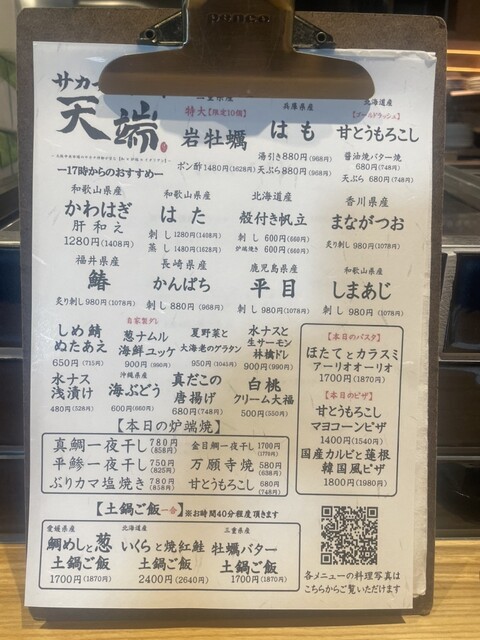 サカ
天端
ー17時からのおすすめー
三重県産
特大【限定10個】
岩牡蠣
ポン酢 1480円(1628円)
兵庫県産
はも
湯引き880円(968円)
天ぷら880円(968円)
北海道産
【ゴールドラッシュ】
甘とうもろこし
醤油焼バター焼
680円(748円)
天ぷら 680円(748円)
和歌山県産
かわはぎ
肝和え
1280円(1408円)
和歌山県産
はた
刺し 1280円(1408円)
蒸し 1480円(1628円)
北海道産
殻付き帆立
刺し 600円(660円)
炉端焼き 600円(660円)
香川県産
まながつお
炙り刺し 980円(1078円)
福井県産
鰆
炙り刺し 980円(1078円)
長崎県産
かんぱち
刺し 880円(968円)
鹿児島県産
平目
刺し 980円(1078円)
和歌山県産
しまあじ
刺し 980円(1078円)
しめ鯖
ぬたあえ
650円(715円)
自家製ダレ
葱ナムル
海鮮ユッケ
900円(990円)
夏野菜と
大海老のグラタン
950円(1045円)
水ナスと
生サーモン
林檎ドレ
900円(990円)
水ナス
浅漬け
480円(528円)
沖縄県産
海ぶどう
600円(660円)
真だこの
唐揚げ
680円(748円)
白桃
クリーム大福
500円(550円)
【本日のパスタ】
ほたてとカラスミ
アーリオオーリオ
1700円(1870円)
【本日のピザ】
甘とうもろこし
マヨコーンピザ
1400円(1540円)
国産カルビと蓮根
韓国風ピザ
1800円(1980円)
【本日の炉端焼】
真鯛一夜干し 780円(858円)
平鯵一夜干し 750円(825円)
ぶりカマ塩焼き 780円(858円)
金目鯛一夜干 1700円(1870円)
万願寺焼 580円(638円)
甘とうもろこし 680円(748円)
【土鍋ご飯一合】※お時間40分程度頂きます
愛媛県産
鯛めしと葱
土鍋ご飯
1700円(1870円)
北海道産
いくらと焼紅鮭
土鍋ご飯
2400円(2640円)
三重県産
牡蠣バター
土鍋ご飯
1700円(1870円)
各メニューの料理写真は
こちらからご覧いただけます